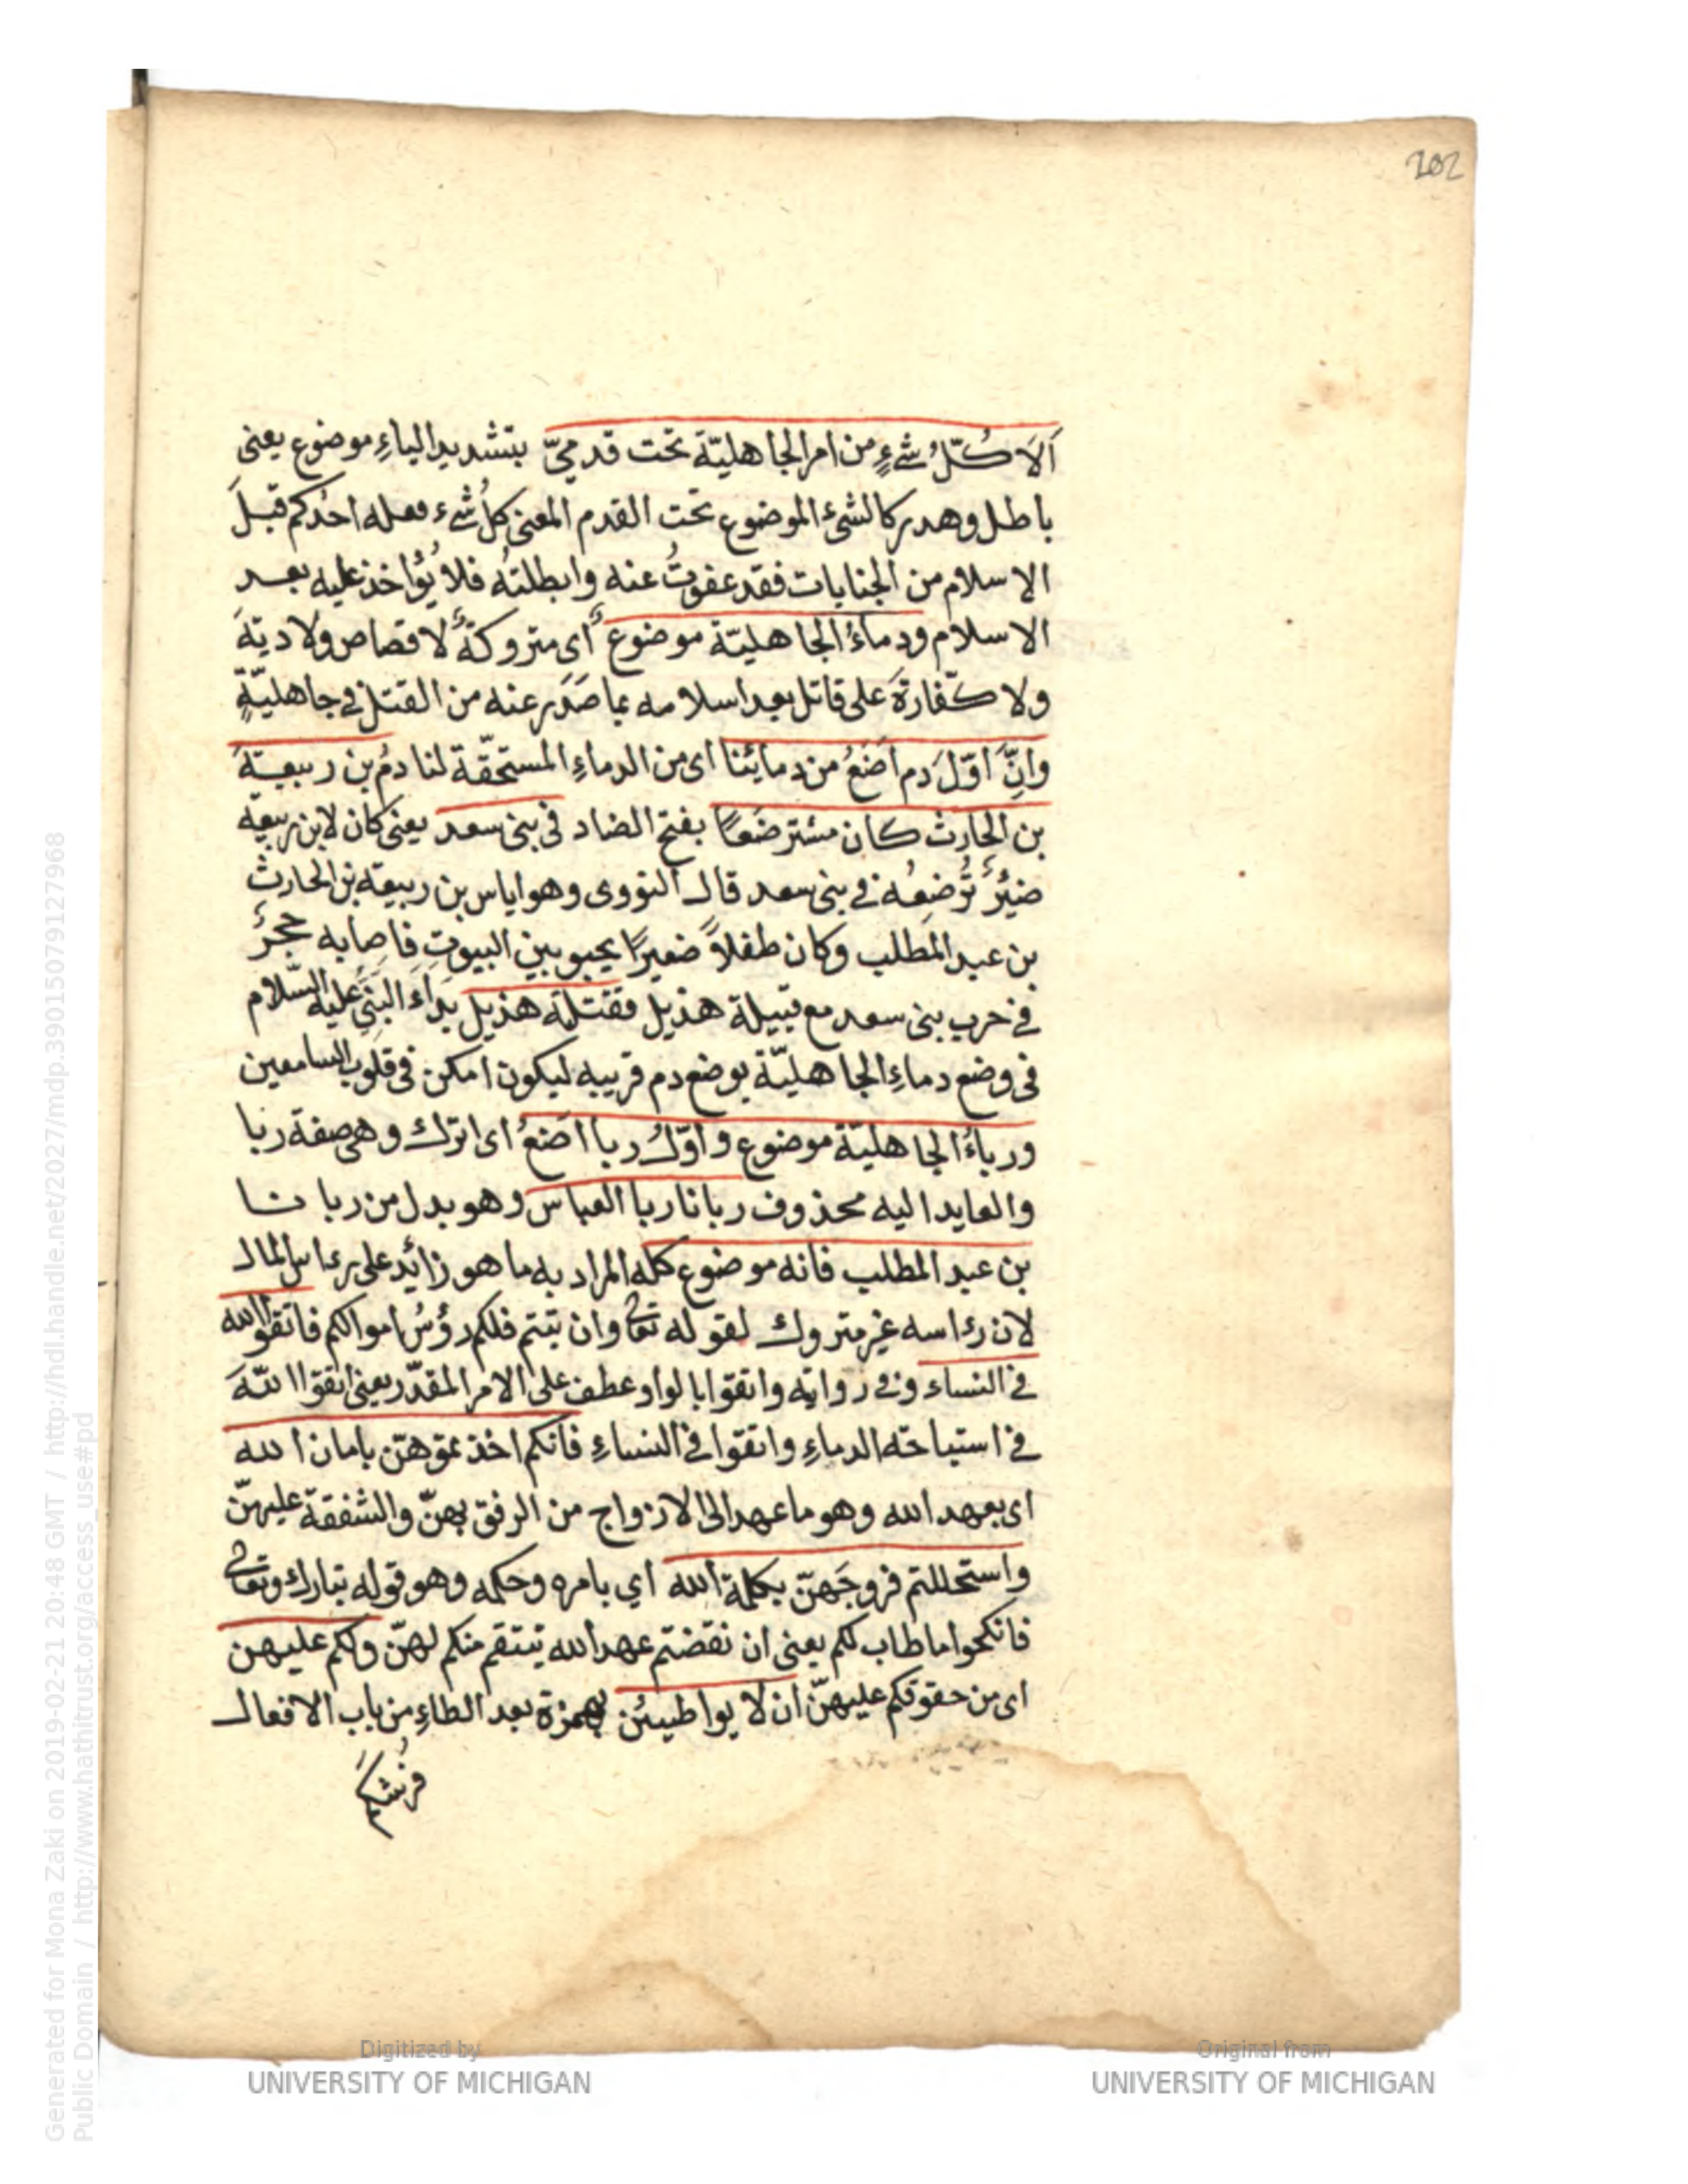 202
اَلاَ كُلُّ شَىْءٍ من امر الجاهليّة تحت قدميّ بتشديد الياءِ موضوع يعنى
باطل وهدر كالشئ الموضوع تحت القدم المعنى كلُّ شىء فعله احدُكم قبلَ
الاسلام من الجنايات فقد عفوتُ عنه وابطلتهُ فلا يُؤاخذ عليه بعد
الاسلام ودماءُ الجاهليّة موضوع اى متروكةٌ لا قصاص ولا ديةَ
ولا كفّارةَ على قاتل بعد اسلامه بما صَدَر عنه من القتل فى جاهليّةٍ
وانّ اوّلَ دم اضَعُ من دمائنا اى من الدماءِ المستحقّة لنا دمُ بن ربيعةَ
بن الحارث كان مسترضَعًا بفتح الضاد فى بنى سعد يعنى كان لابن ربيعة
ضئرٌ تُرضِعُه فى بنى سعد قال النووى وهو اياس بن ربيعة بن الحارث
بن عبد المطلب وكان طفلاً صغيرًا يحبو بين البيوتِ فاصابه حجرٌ
فى حرب بنى سعد مع قبيلة هذيل فقتلته هذيل بَدَاءَ النبَّى عليه السّلام
فى وضع دماءِ الجاهليّة بوضع دم قريبه ليكون امكن فى قلوب السامعين
ورباءُ الجاهليّة موضوع واوّلُ ربا اضَعُ اى اترك وهى صفة ربا
والعايد اليه محذوف ربانا ربا العباس وهو بدل من ربانا
بن عبد المطلب فانه موضوع كله المراد به ما هو زائد على رءاس المال
لان رءاسه غير متروك لقوله تعا وان تبتم فلكم رؤسُ اموالكم فاتقوا الله
فى النساء وفى رواية واتقوا بالواو عطف على الامر المقدّر يعنى اتقوا اللّهَ
فى استباحة الدماءِ واتقوا فى النساءِ فانكم اخذتموهنّ بامان الله
اى بعهد الله وهو ما عهد الى الازواج من الرفق بهنّ والشفقة عليهنّ
واستحللتم فروجَهنّ بكلمة الله اي بامره وحكمه وهو قوله تبارك وتعا
فانكحوا ما طاب لكم يعنى ان نقضتم عهد الله ينتقم منكم لهنّ ولكم عليهن
اى من حقوقكم عليهنّ ان لا يواطيئن بهمزة بعد الطاءِ من باب الافعال
فرشكم
Generated for Mona Zaki on 2019-02-21 20:48 GMT / http://hdl.handle.net/2027/mdp.39015079127968
Public Domain / http://www.hathitrust.org/access_use#pd
Digitized by
UNIVERSITY OF MICHIGAN
Original from
UNIVERSITY OF MICHIGAN